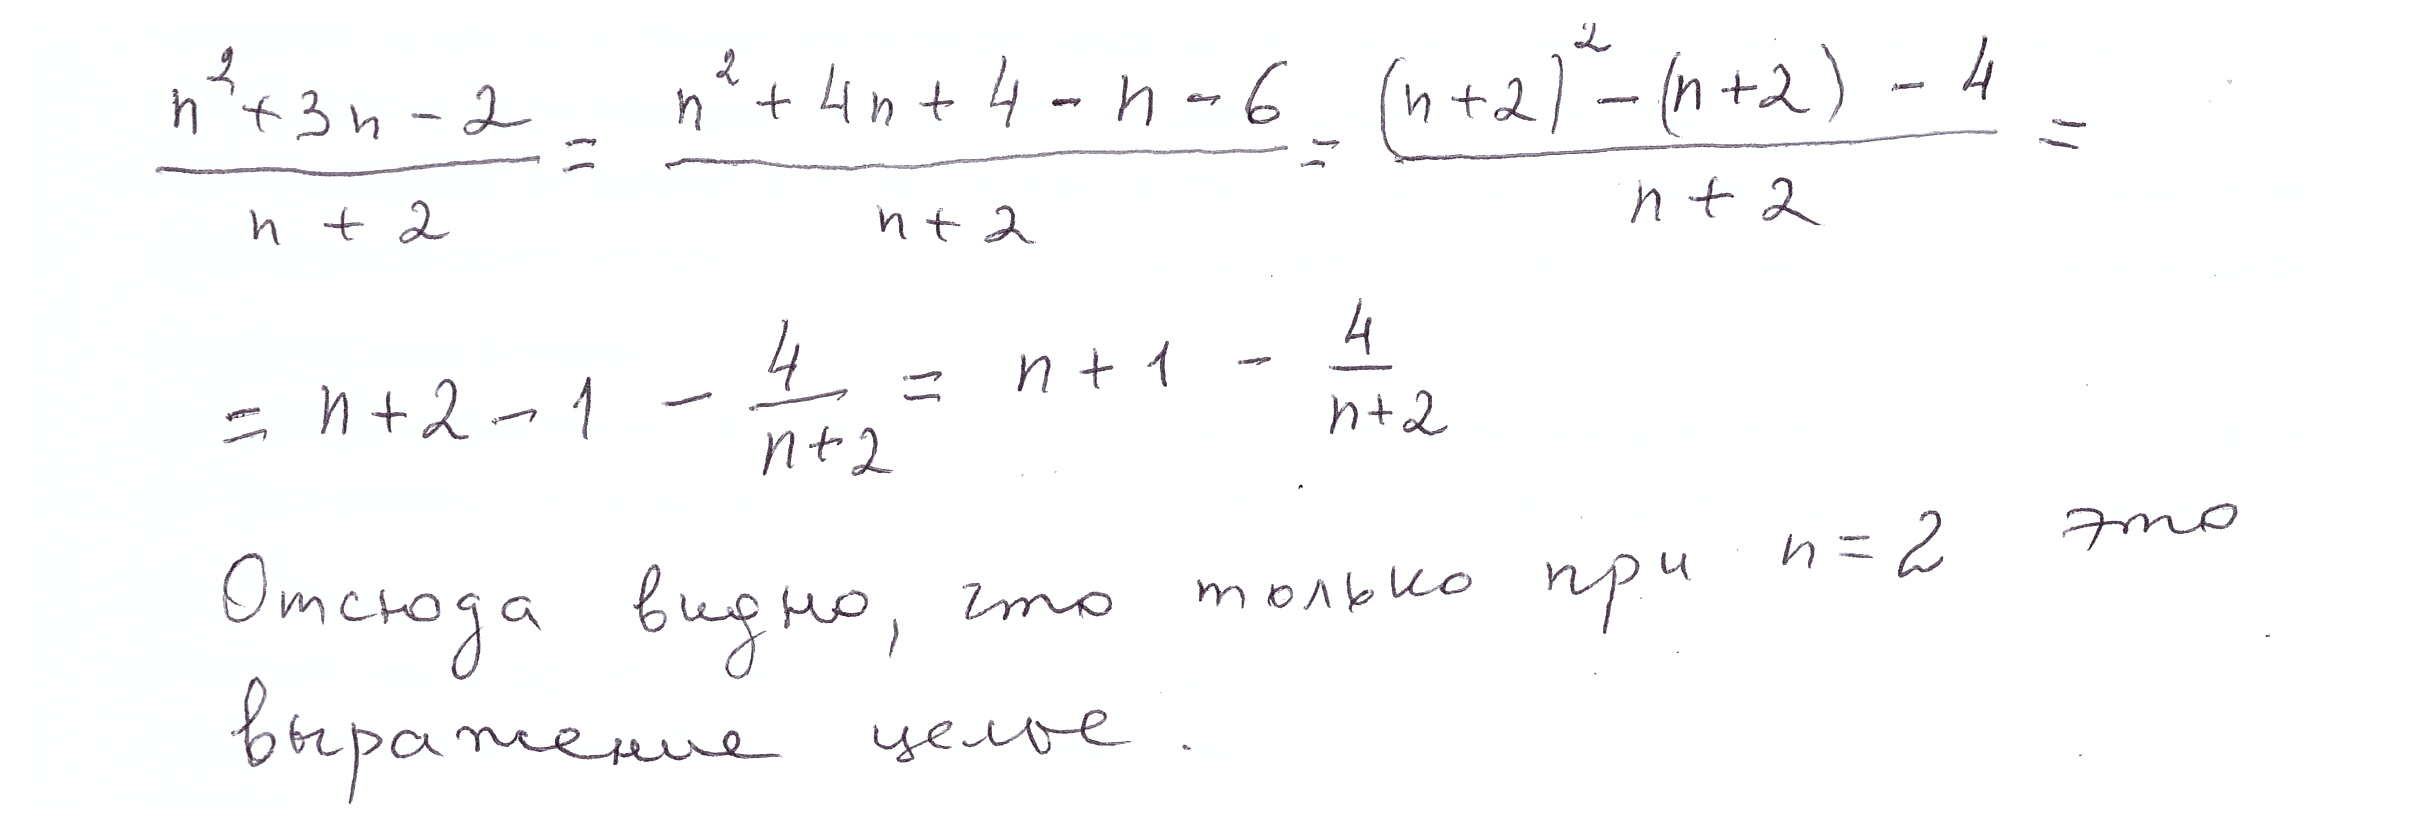 (n²+3n-2)/(n+2) = (n²+4n+4-n-6)/(n+2) = ((n+2)²-(n+2)-4)/(n+2) =
= n+2-1 - 4/(n+2) = n+1 - 4/(n+2)
Отсюда видно, что только при n=2 это
выражение целое.